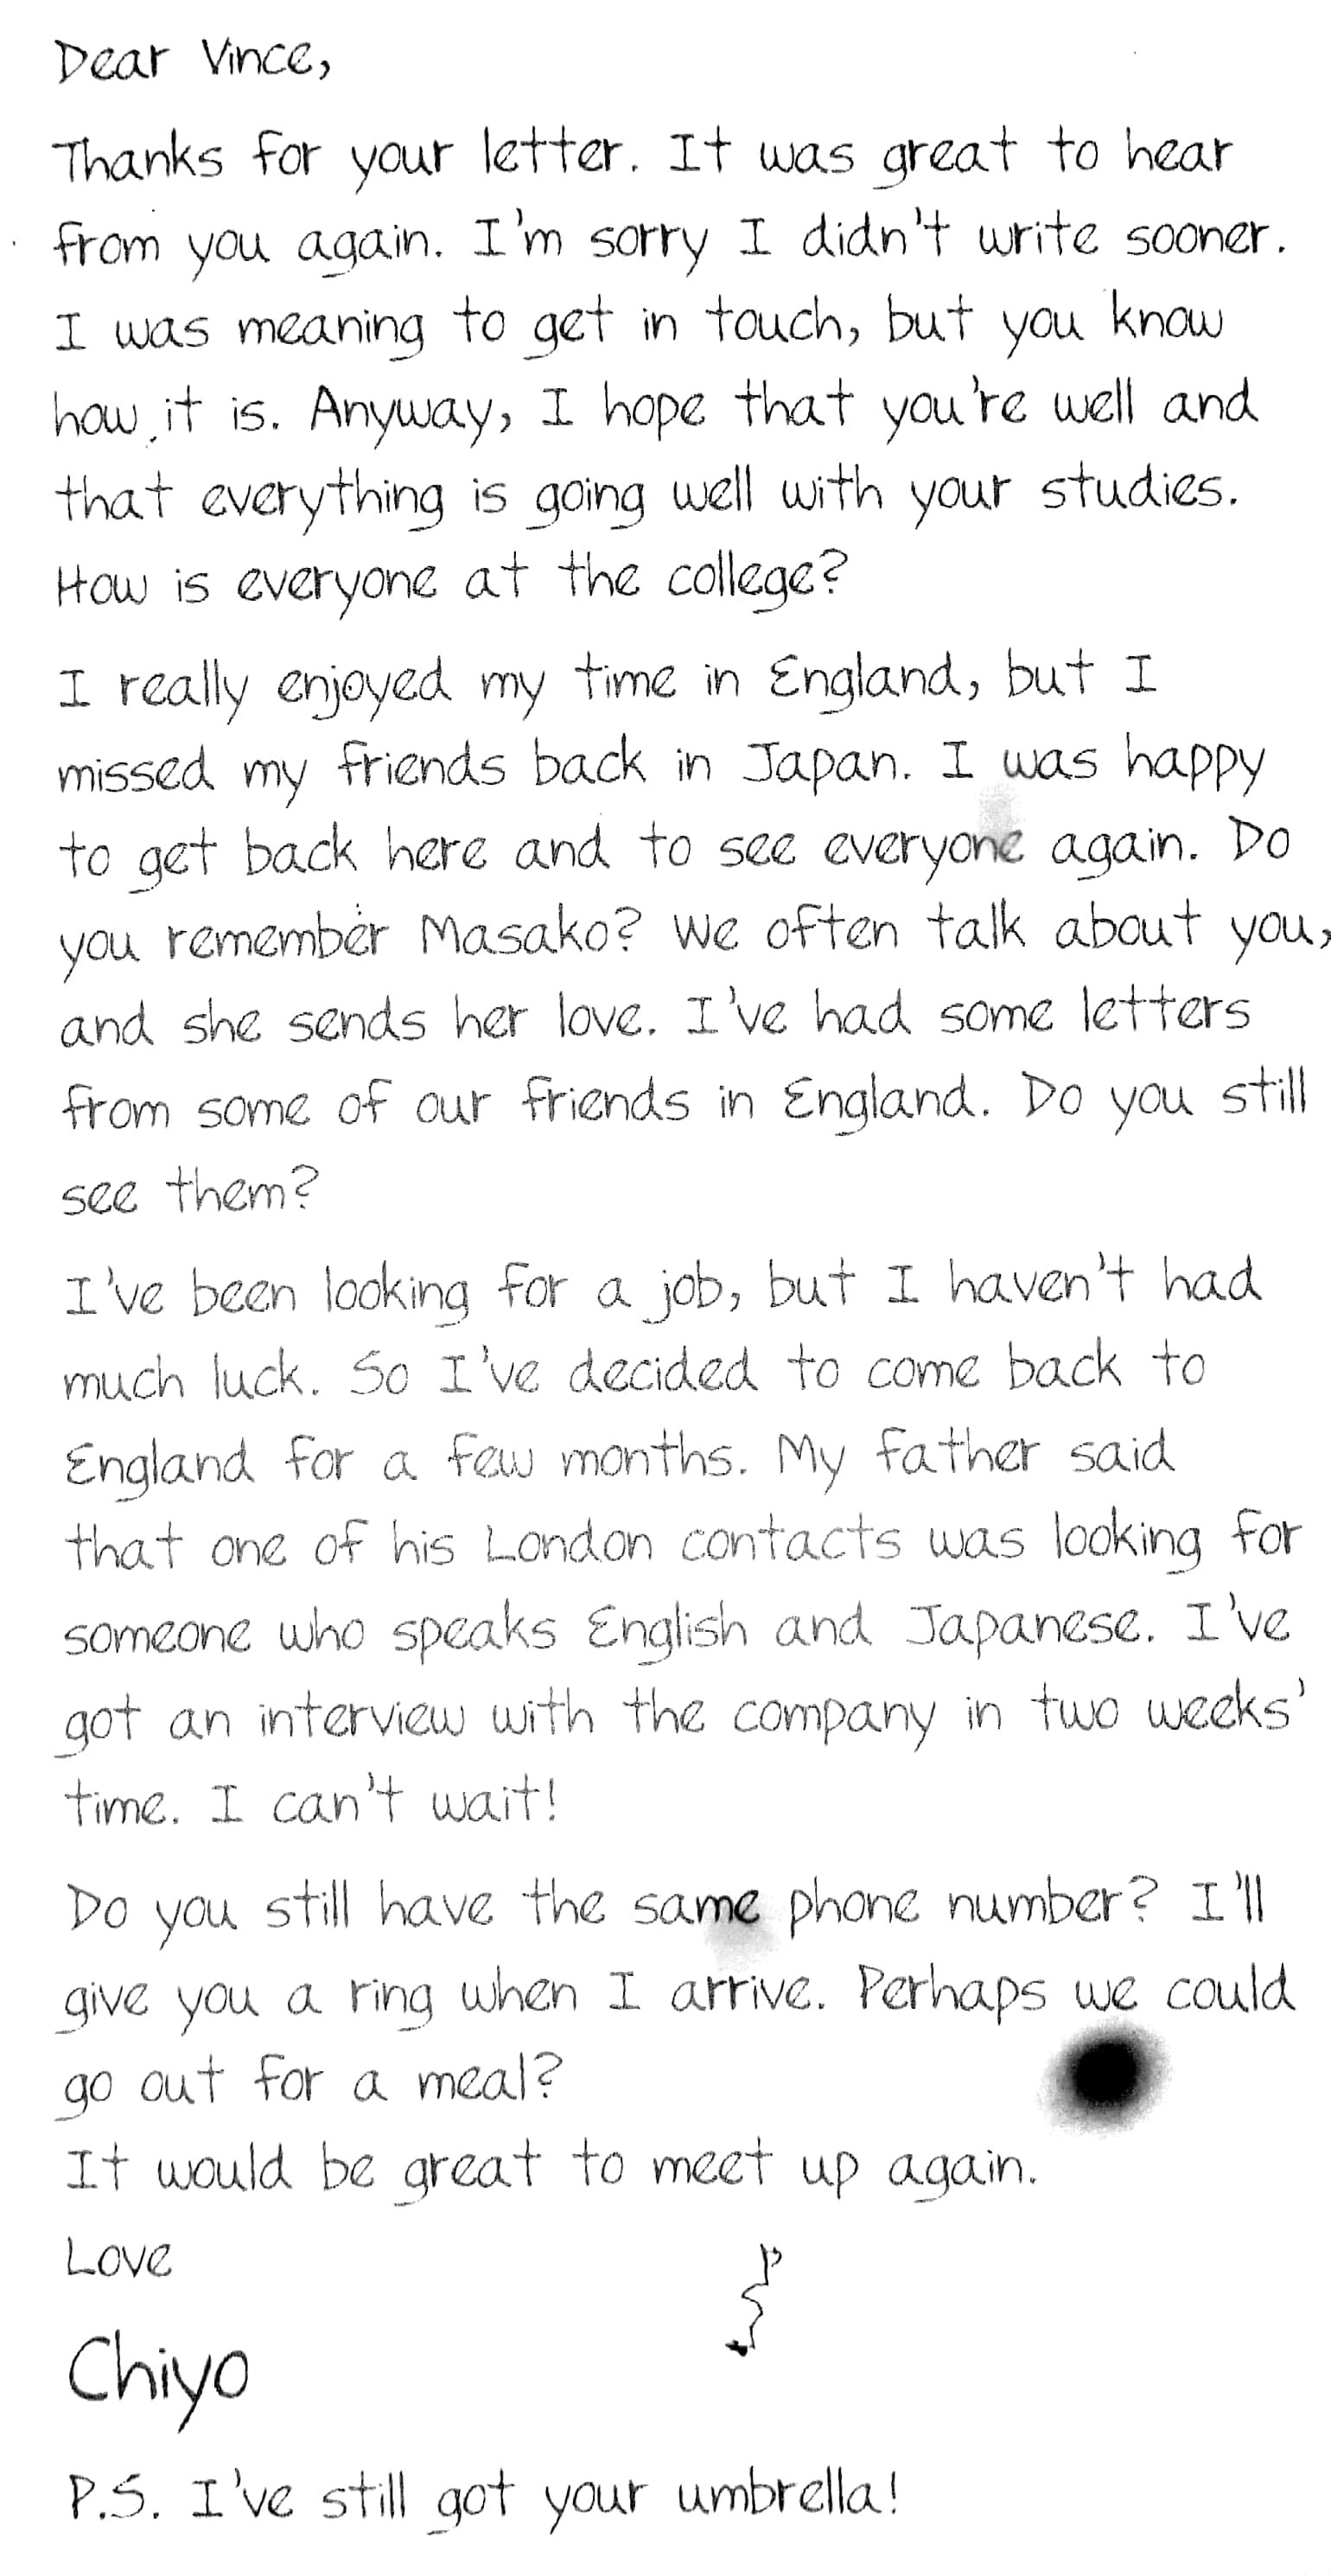 Dear Vince,
Thanks for your letter. It was great to hear
from you again. I'm sorry I didn't write sooner.
I was meaning to get in touch, but you know
how it is. Anyway, I hope that you're well and
that everything is going well with your studies.
How is everyone at the college?
I really enjoyed my time in England, but I
missed my friends back in Japan. I was happy
to get back here and to see everyone again. Do
you remember Masako? We often talk about you,
and she sends her love. I've had some letters
from some of our friends in England. Do you still
see them?
I've been looking for a job, but I haven't had
much luck. So I've decided to come back to
England for a few months. My father said
that one of his London contacts was looking for
someone who speaks English and Japanese. I've
got an interview with the company in two weeks'
time. I can't wait!
Do you still have the same phone number? I'll
give you a ring when I arrive. Perhaps we could
go out for a meal?
It would be great to meet up again.
Love
Chiyo
P.S. I've still got your umbrella!